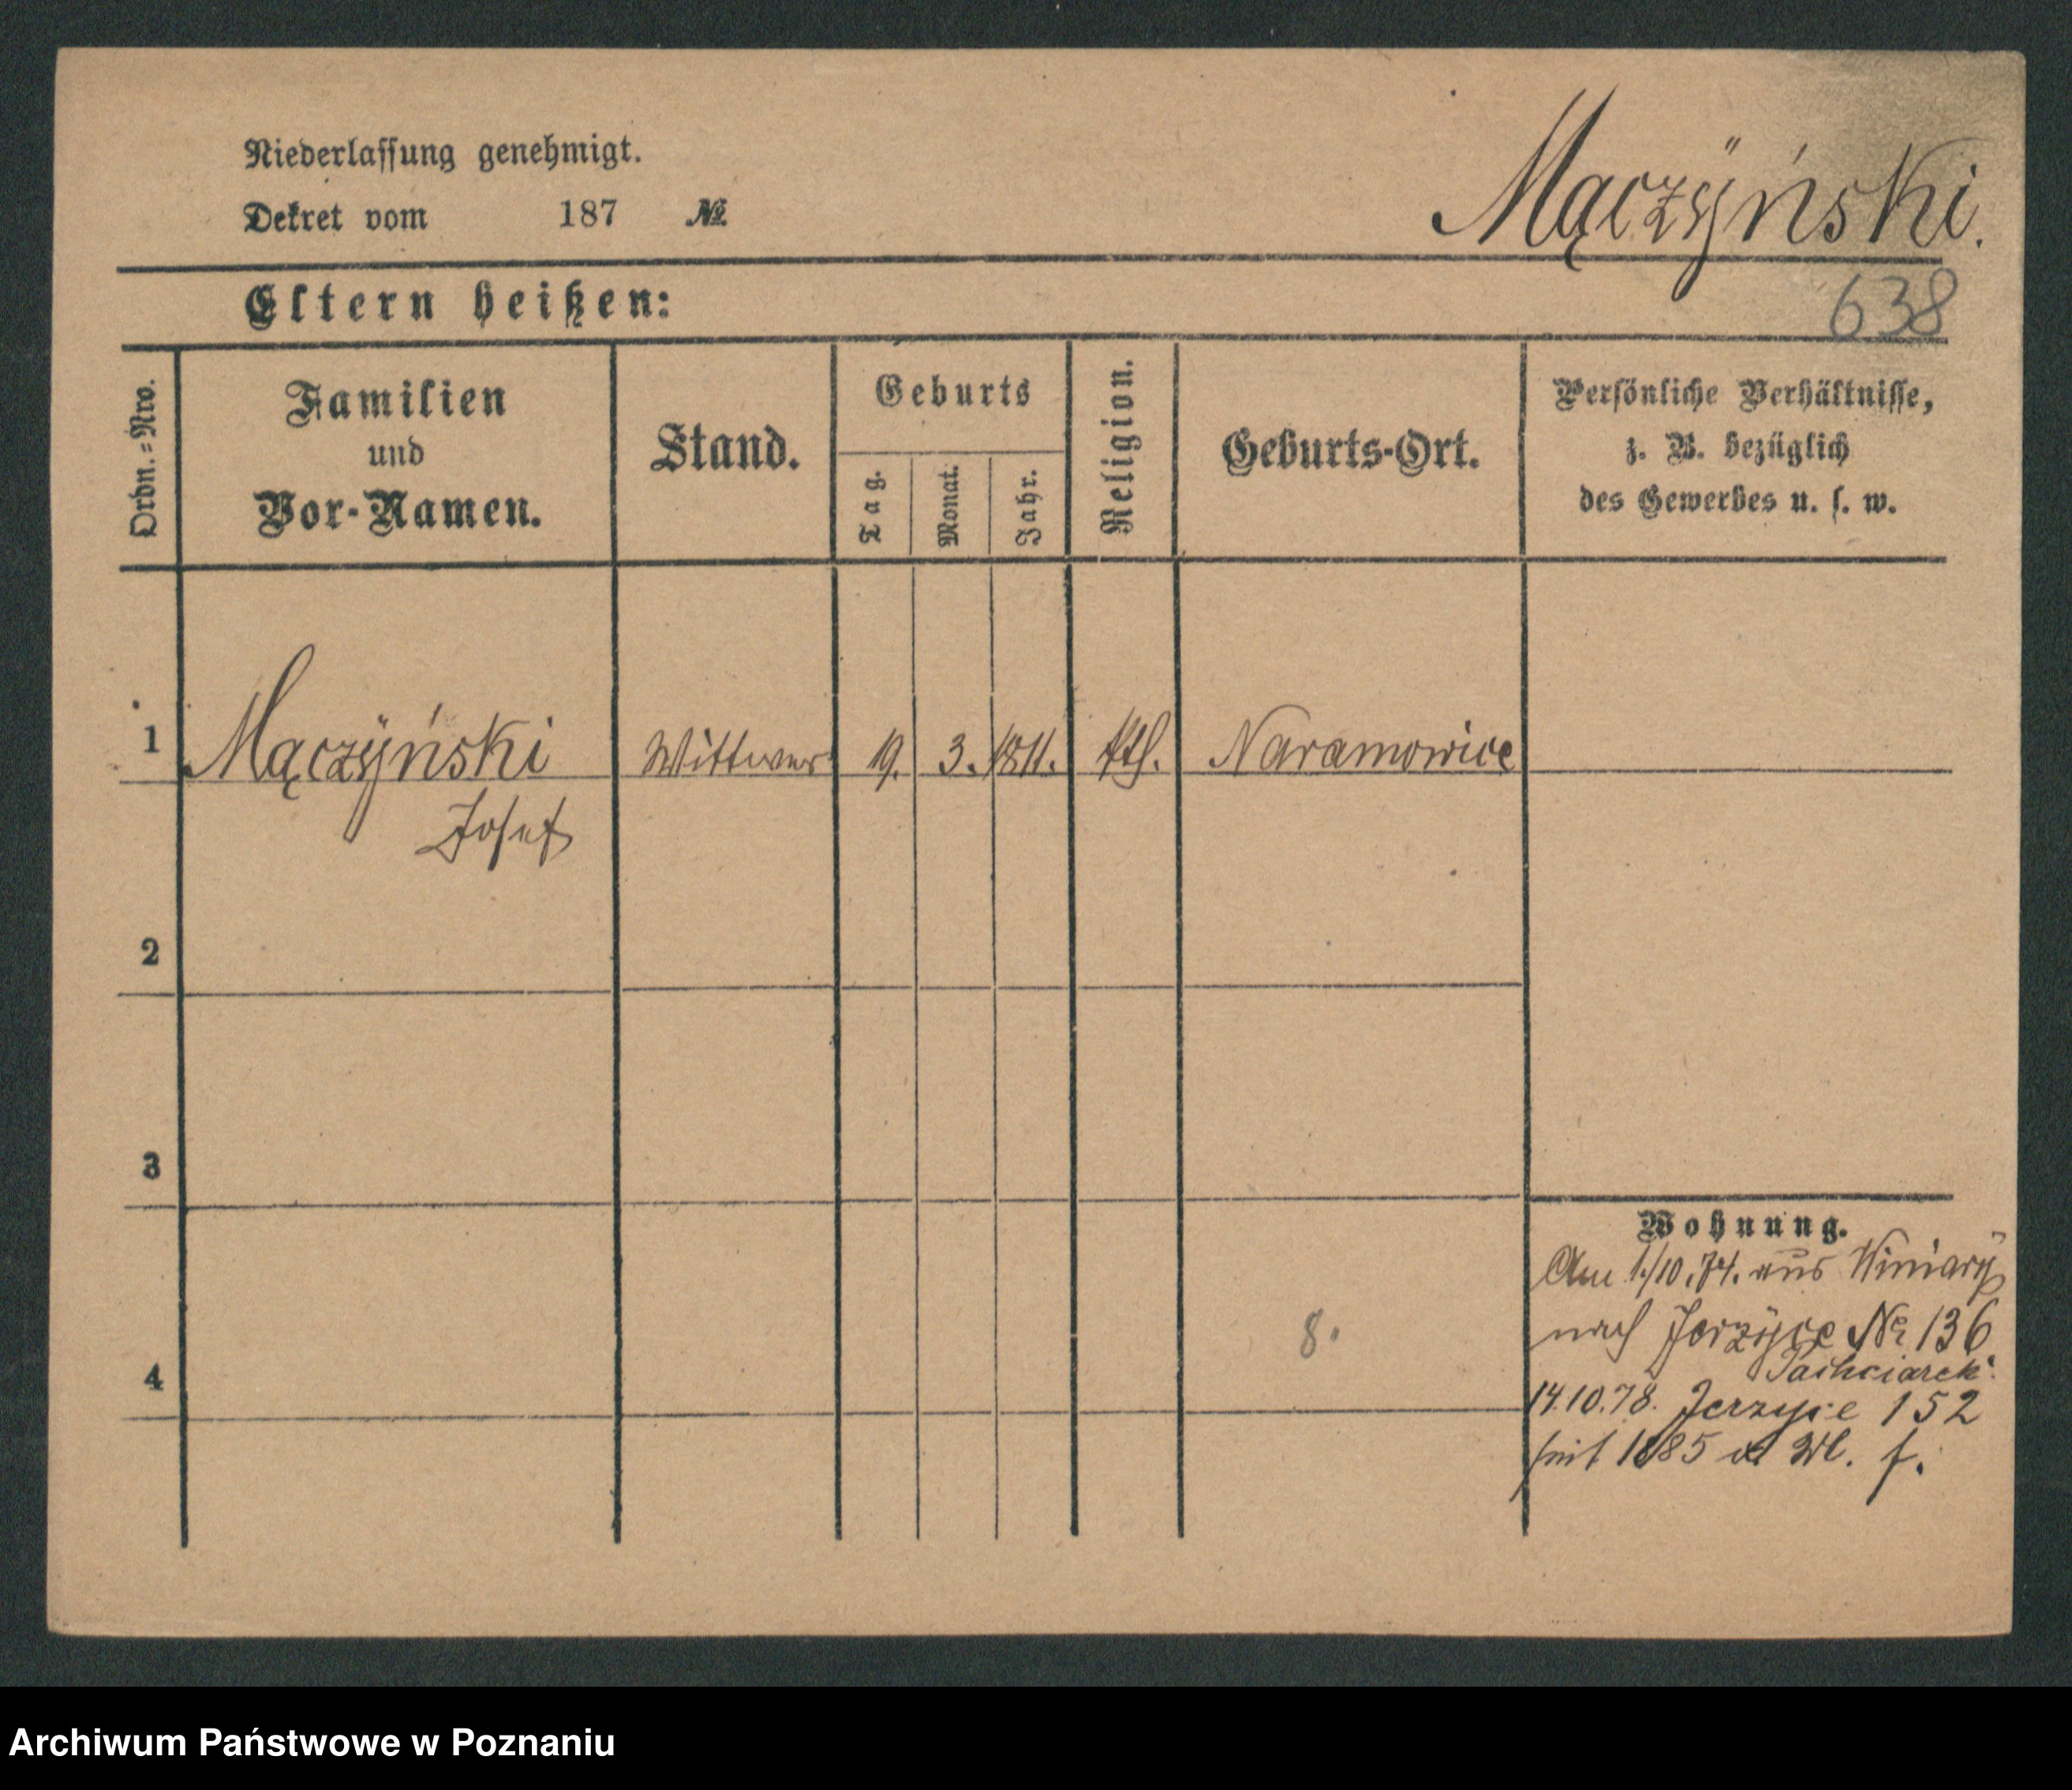 Niederlassung genehmigt.
Dekret vom 187 №
Mączÿński.
638
Eltern heißen:
Ordn.=Nro.
Familien
und
Vor-Namen.
Stand.
Geburts
Tag.
Monat.
Jahr.
Religion.
Geburts-Ort.
Persönliche Verhältnisse,
z. B. bezüglich
des Gewerbes u. s. w.
1 Mączÿński Wittwer 19. 3. 1811. kth. Naramowice
Josef
2
3
4
8.
Wohnung.
Am 1./10.74. aus Winiarÿ
nach Jerzÿce № 136
14.10.78. Jerzyce 152
seit 1885
Archiwum Państwowe w Poznaniu